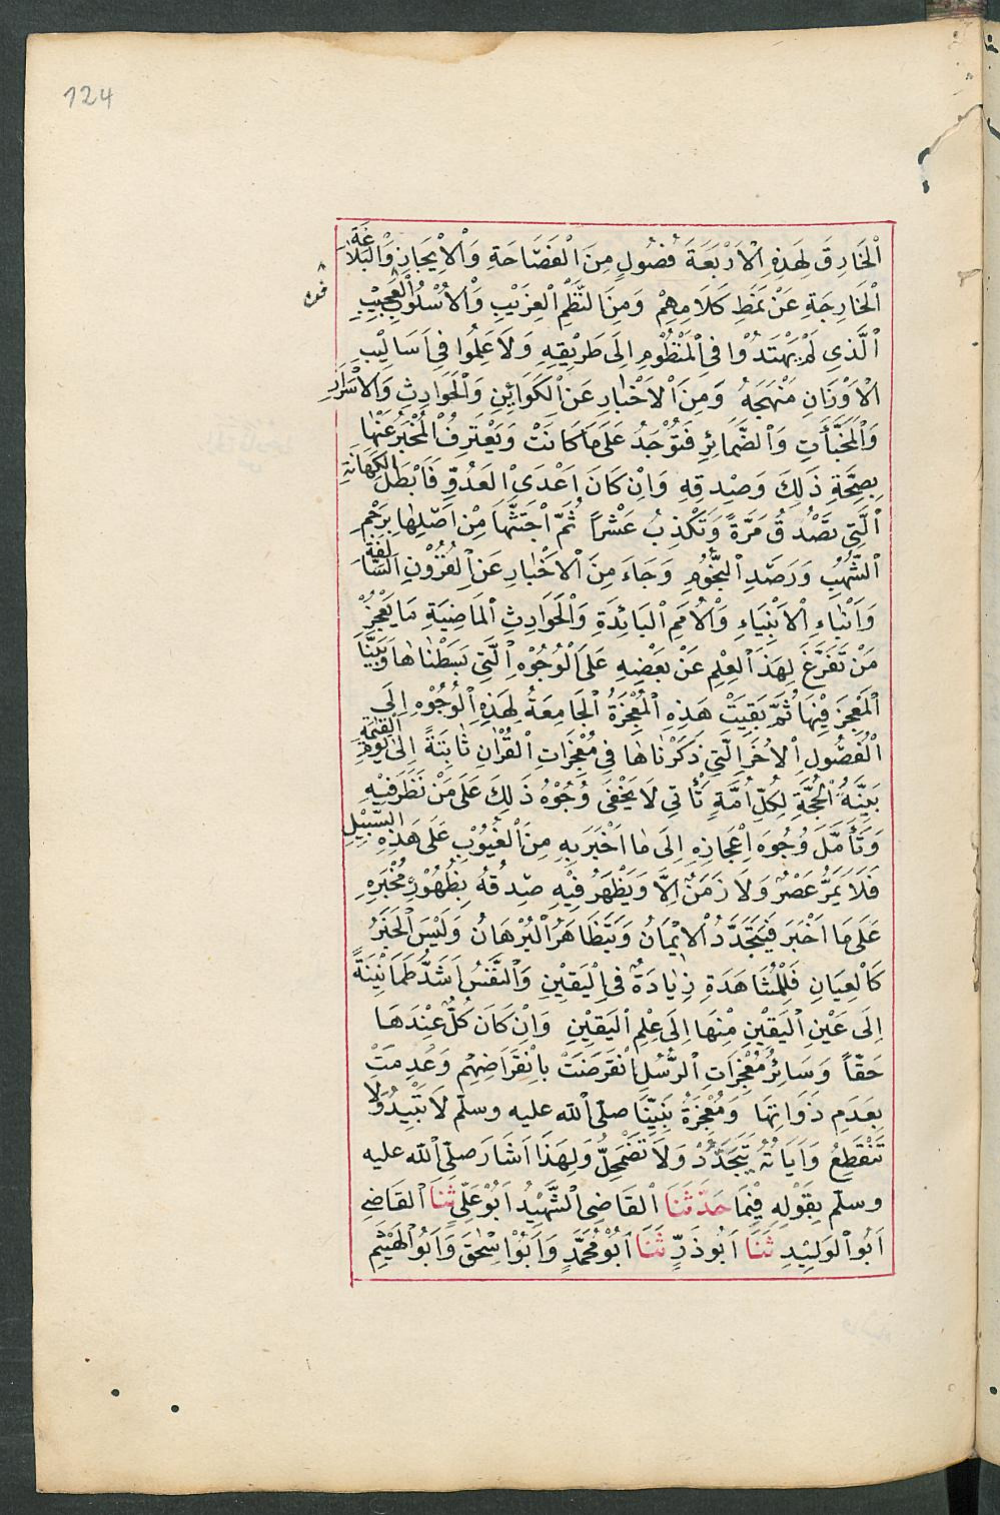 124
اَلْخَارِقَ لِهَذِهِ الْاَرْبَعَةَ فُصُولٍ مِنَ الْفَصَاحَةِ وَالْاِيْجَازِ وَالْبَلَاغَةِ
الْخَارِجَةِ عَنْ نَمَطِ كَلَامِهِمْ وَمِنَ النَّظْمِ الْغَرِيْبِ وَالْاُسْلُوبِ الْعَجِيْبِ
الَّذِي لَمْ يَهْتَدُوْا فِي الْمَنْظُوْمِ اِلَى طَرِيْقِهِ وَلَا عَلِمُوا فِي اَسَالِيْبِ
الْاَوْزَانِ مَنْهَجَهُ وَمِنَ الْاَخْبَارِ عَنِ الْكَوَائِنِ وَالْحَوَادِثِ وَالْاَسْرَارِ
وَالْمُخَبَّأَتِ وَالضَّمَائِرِ فَتُوْجَدُ عَلَى مَا كَانَتْ وَيَعْتَرِفُ الْمُخْبَرُ عَنْهَا
بِصِحَّةِ ذَلِكَ وَصِدْقِهِ وَاِنْ كَانَ اَعْدَى الْعَدُوِّ فَاَبْطَلَ الْكَهَانَةِ
الَّتِي تَصْدُقُ مَرَّةً وَتَكْذِبُ عَشْرًا ثُمَّ اجْتَثَّهَا مِنْ اَصْلِهَا بِرَجْمِ
الشُّهُبِ وَرَصَدِ النُّجُوْمِ وَجَاءَ مِنَ الْاَخْبَارِ عَنِ الْقُرُوْنِ السَّالِفَةِ
وَاَنْبَاءِ الْاَنْبِيَاءِ وَالْاُمَمِ الْبَائِدَةِ وَالْحَوَادِثِ الْمَاضِيَةِ مَا يَعْجِزُ
مَنْ تَفَرَّغَ لِهَذَ الْعِلْمِ عَنْ بَعْضِهِ عَلَى الْوُجُوْهِ الَّتِي بَسَطْنَاهَا وَبَيَّنَّا
الْمُعْجِزَ فِيْهَا ثُمَّ بَقِيَتْ هَذِهِ الْمُعْجِزَةُ الْجَامِعَةُ لِهَذِهِ الْوُجُوْهِ اِلَى
الْفُصُولِ الْاُخَرِ الَّتِي ذَكَرْنَاهَا فِي مُعْجِزَاتِ الْقُرْاٰنِ ثَابِتَةً اِلَى يَوْمِ الْقِيٰمَةِ
بَيِّنَةُ الْحُجَّةِ لِكُلِّ اُمَّةٍ تَأْتِي لَا يَخْفَى وُجُوْهُ ذَلِكَ عَلَى مَنْ نَظَرَ فِيْهِ
وَتَأَمَّلَ وُجُوهَ اِعْجَازِهِ اِلَى مَا اَخْبَرَ بِهِ مِنَ الْغُيُوْبِ عَلَى هَذِهِ السَّبِيْلِ
فَلَا يَمُرُّ عَصْرٌ وَلَا زَمَنٌ اِلَّا وَيَظْهَرُ فِيْهِ صِدْقُهُ بِظُهُوْرِ مُخْبَرِهِ
عَلَى مَا اَخْبَرَ فَيَتَجَدَّدُ الْاِيْمَانُ وَيَتَظَاهَرُ الْبُرْهَانُ وَلَيْسَ الْخَبَرُ
كَالْعِيَانِ فَلِلْمُشَاهَدَةِ زِيَادَةٌ فِي الْيَقِيْنِ وَالنَّفْسُ اَشَدُّ طَمَأْنِيْنَةً
اِلَى عَيْنِ الْيَقِيْنِ مِنْهَا اِلَى عِلْمِ الْيَقِيْنِ وَاِنْ كَانَ كُلٌّ عِنْدَهَا
حَقًّا وَسَائِرُ مُعْجِزَاتِ الرُّسُلِ انْقَرَضَتْ بِانْقِرَاضِهِمْ وَعُدِمَتْ
بِعَدَمِ ذَوَاتِهَا وَمُعْجِزَةُ نَبِيِّنَا صلّى الله عليه وسلّم لَا تَبِيْدُ وَلَا
تَنْقَطِعُ وَاٰيَاتُهُ تَتَجَدَّدُ وَلَا تَضْمَحِلُّ وَلِهَذَا اَشَارَ صلّى الله عليه
وسلّم بِقَوْلِهِ فِيْمَا حَدَّثَنَا الْقَاضِي الشَّهِيْدُ اَبُوْ عَلِيٍّ ثَنَا الْقَاضِي
اَبُو الْوَلِيْدِ ثَنَا اَبُو ذَرٍّ ثَنَا اَبُوْ مُحَمَّدٍ وَاَبُوْ اِسْحٰقَ وَاَبُو الْهَيْثَمِ